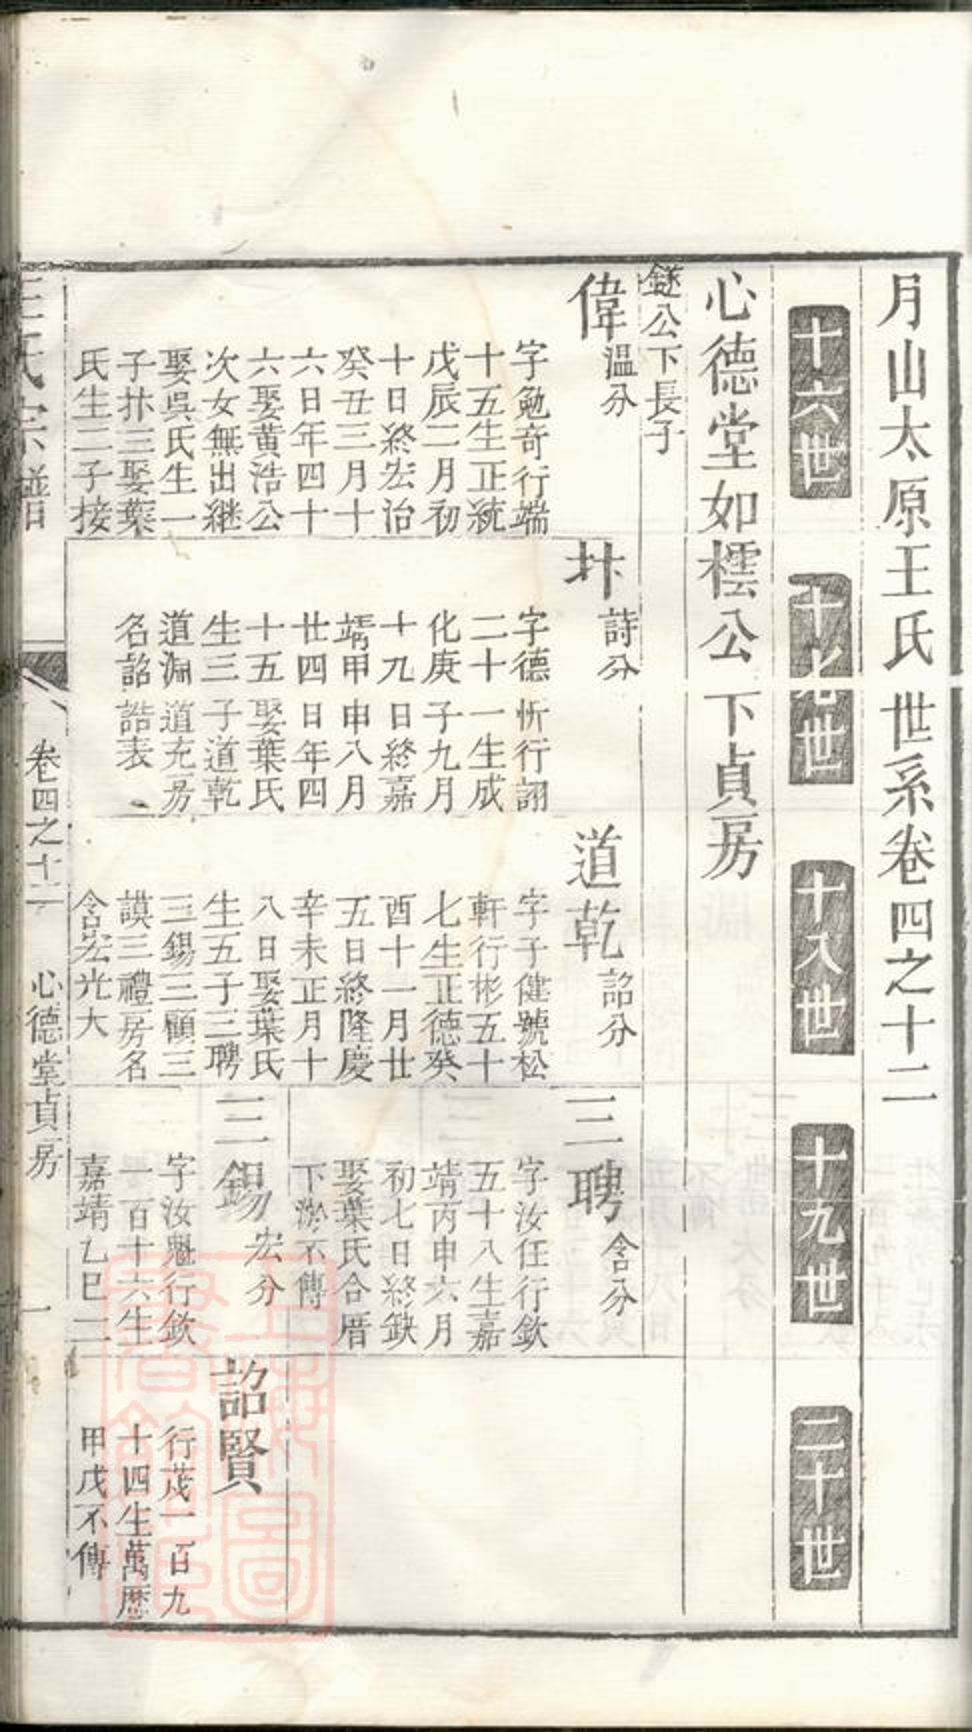 月山太原王氏世系卷四之十二
十六世
十七世
十八世
十九世
二十世
心德堂如橒公下貞房
鐩公下長子
偉
溫分
字勉奇行端
十五生正統
戊辰二月初
十日終宏治
癸丑三月十
六日年四十
六娶黃浩公
次女無出繼
娶吳氏生一
子抃三娶葉
氏生二子接
抃
詩分
字德忻行詡
二十一生成
化庚子九月
十九日終嘉
靖甲申八月
廿四日年四
十五娶葉氏
生三子道乾
道淵道充房
名詔誥表
道乾
詔分
字子健號松
軒行彬五十
七生正德癸
酉十一月廿
五日終隆慶
辛未正月十
八日娶葉氏
生五子三聘
三錫三顧三
謨三禮房名
含宏光大
三聘
含分
字汝任行欽
五十八生嘉
靖丙申六月
初七日終缺
娶葉氏合厝
下淤不傳
三錫
宏分
字汝魁行欽
一百十六生
嘉靖乙巳二
詔賢
行茂一百九
十四生萬歷
甲戊不傳
王氏宗譜
卷四之十二
心德堂貞房
一
上海圖書館藏